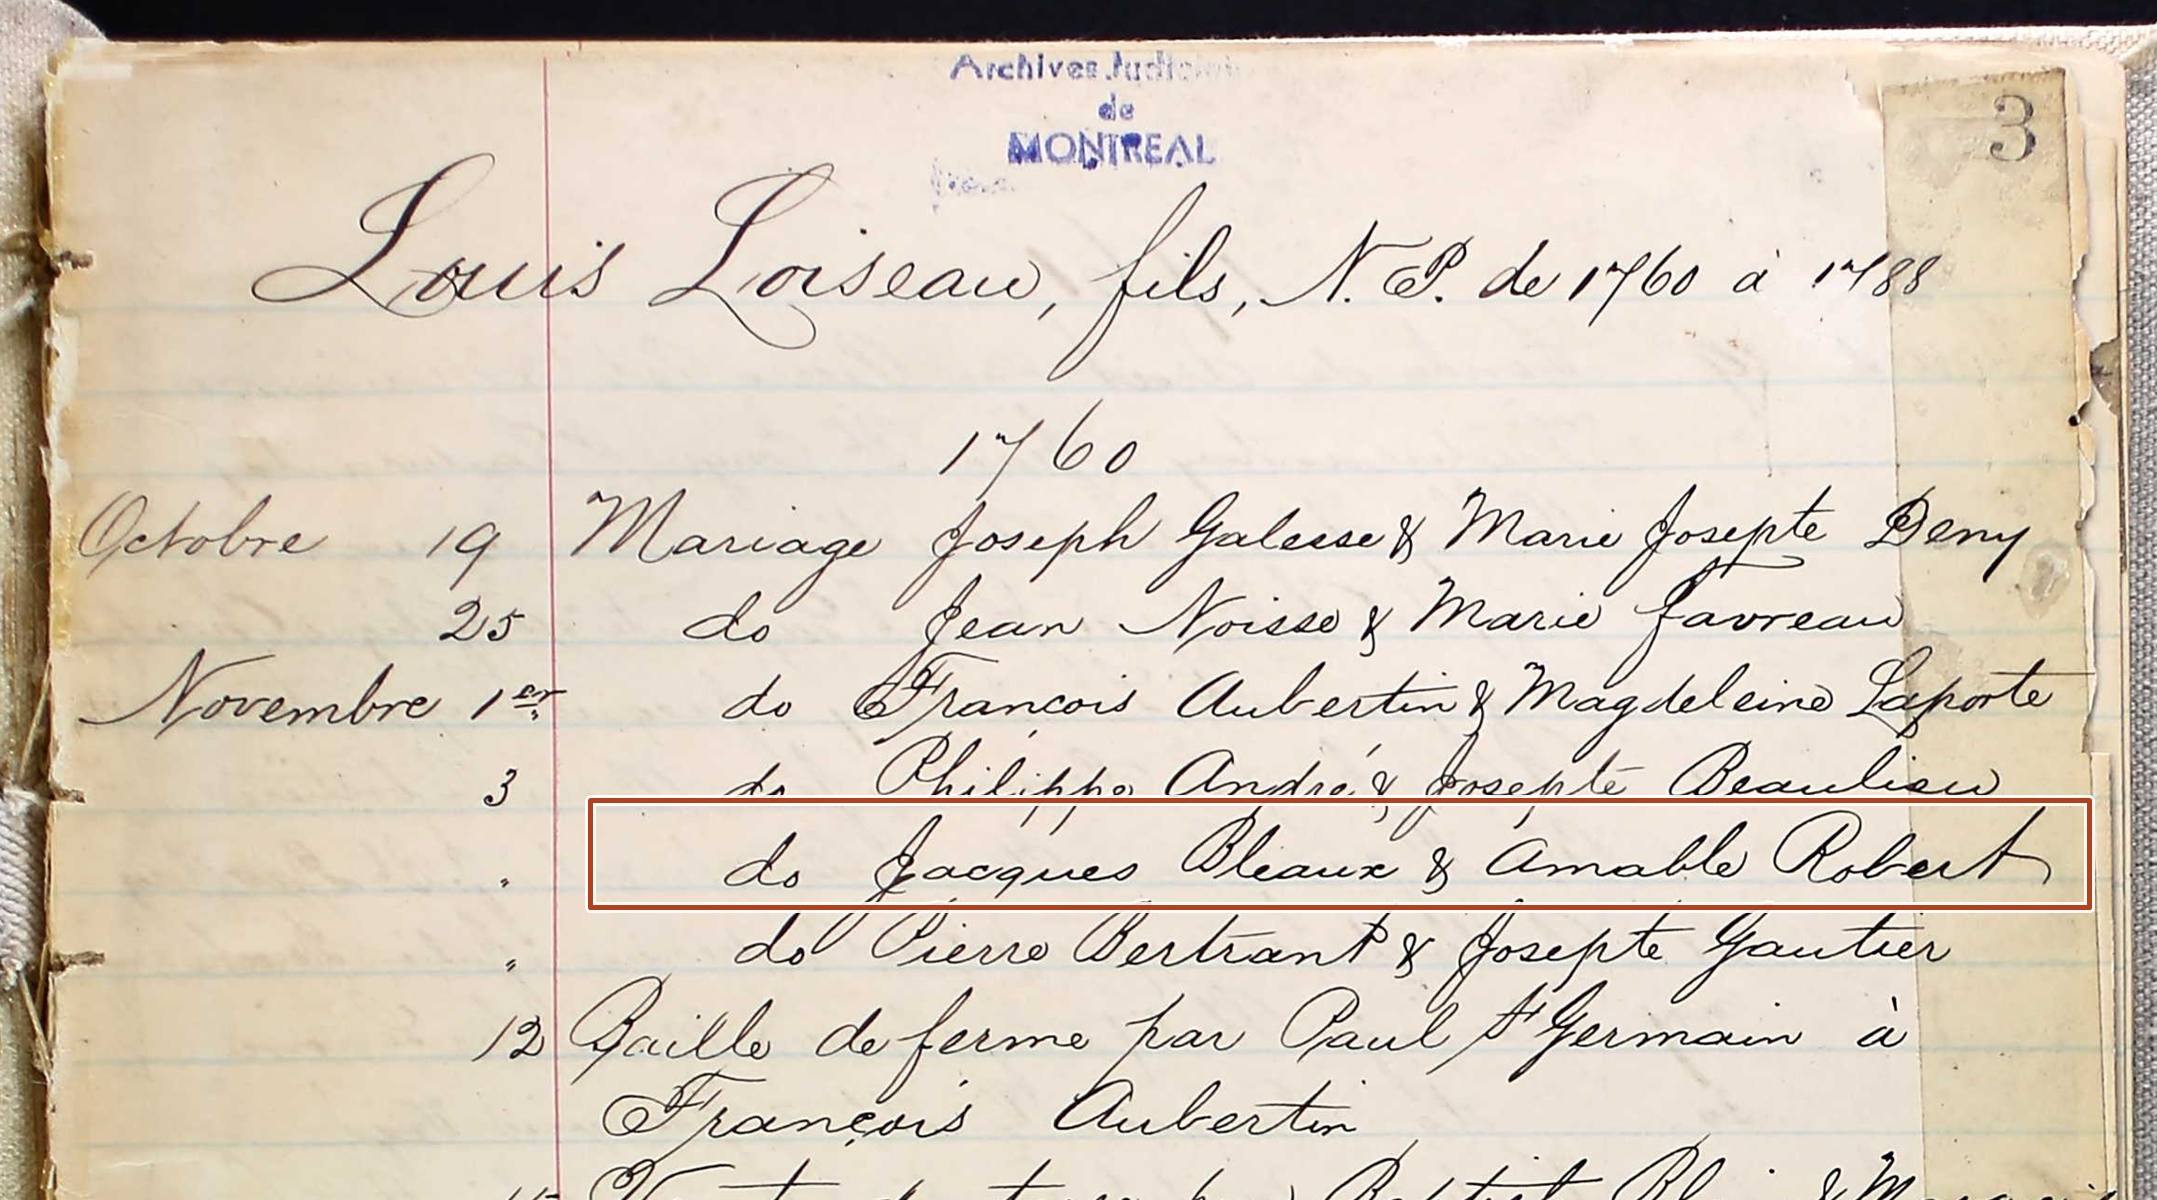 Archives Judiciaires
de
MONTREAL
3
Louis Loiseau, fils, N.P. de 1760 à 1788
1760
Octobre 19 Mariage Joseph Galesse & Marie Josepte Deny
25 do Jean Noisse & Marie Favreau
Novembre 1er do François Aubertin & Magdeleine Laporte
3 do Philippe André & Josepte Beaulieu
" do Jacques Bleaux & Amable Robert
" do Pierre Bertrant & Josepte Gautier
12 Baille de ferme par Paul St Germain à
François Aubertin
15 Vente de terre par Baptist &